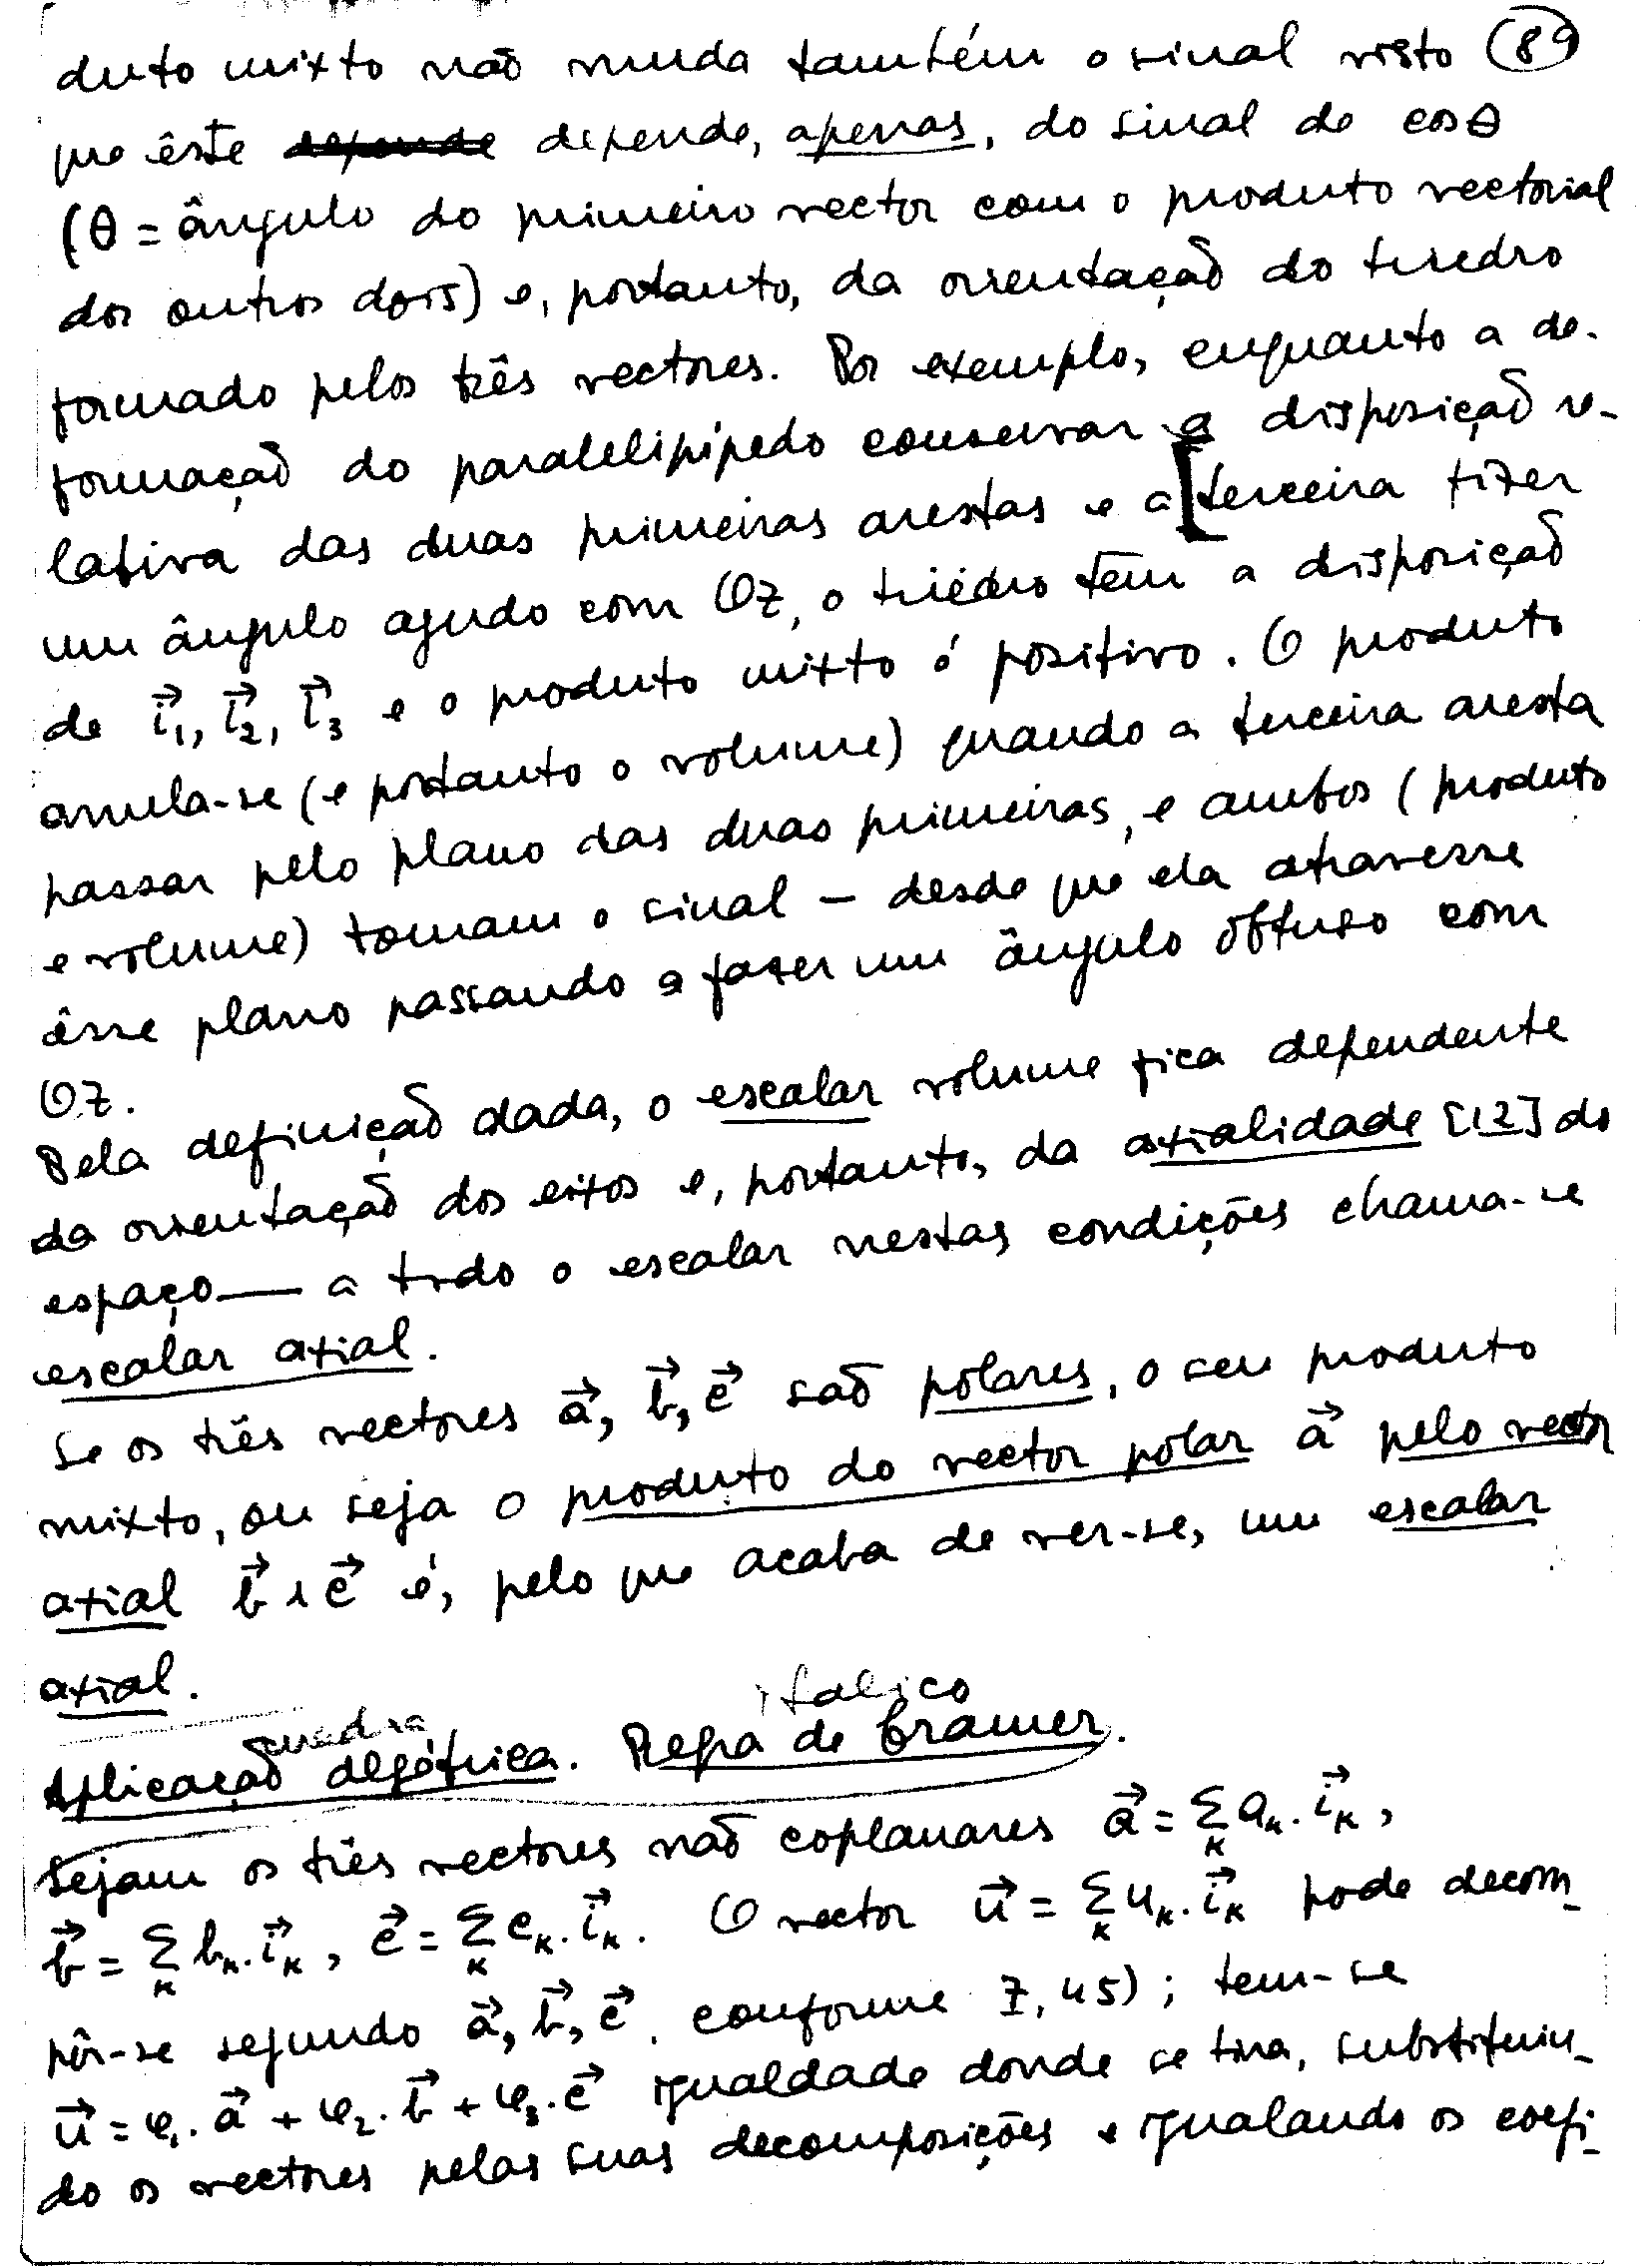 duto mixto não muda também o sinal visto (89)
que êste depende depende, apenas, do sinal de cos θ
(θ = ângulo do primeiro vector com o produto vectorial
dos outros dois) e, portanto, da orientação do triedro
formado pelos três vectores. Por exemplo, enquanto a de-
formação do paralelipípedo conservar a disposição re-
lativa das duas primeiras arestas e a [terceira fizer
um ângulo agudo com Oz, o triédro têm a disposição
de i⃗₁, i⃗₂, i⃗₃ e o produto mixto é positivo. O produto
anula-se (e portanto o volume) quando a terceira aresta
passar pelo plano das duas primeiras, e ambos (produto
e volume) tomam o sinal – desde que ela atravesse
êsse plano passando a fazer um ângulo obtuso com
Oz.
Pela definição dada, o escalar volume fica dependente
da orientação dos eixos e, portanto, da axialidade [12] do
espaço — a todo o escalar nestas condições chama-se
escalar axial.
Se os três vectores a⃗, b⃗, c⃗ são polares, o seu produto
mixto, ou seja o produto do vector polar a⃗ pelo vector
axial b⃗ ∧ c⃗ é, pelo que acaba de ver-se, um escalar
axial.
itálico
quadra
Aplicação algébrica. Regra de Cramer.
Sejam os três vectores não coplanares a⃗ = Σₖ aₖ. i⃗ₖ,
b⃗ = Σₖ bₖ. i⃗ₖ, c⃗ = Σₖ cₖ. i⃗ₖ. O vector u⃗ = Σₖ uₖ. i⃗ₖ pode decom-
pôr-se segundo a⃗, b⃗, c⃗, conforme I, 45); tem-se
u⃗ = φ₁. a⃗ + φ₂. b⃗ + φ₃. c⃗ igualdade donde se tira, substituin-
do os vectores pelas suas decomposições e igualando os coefi-